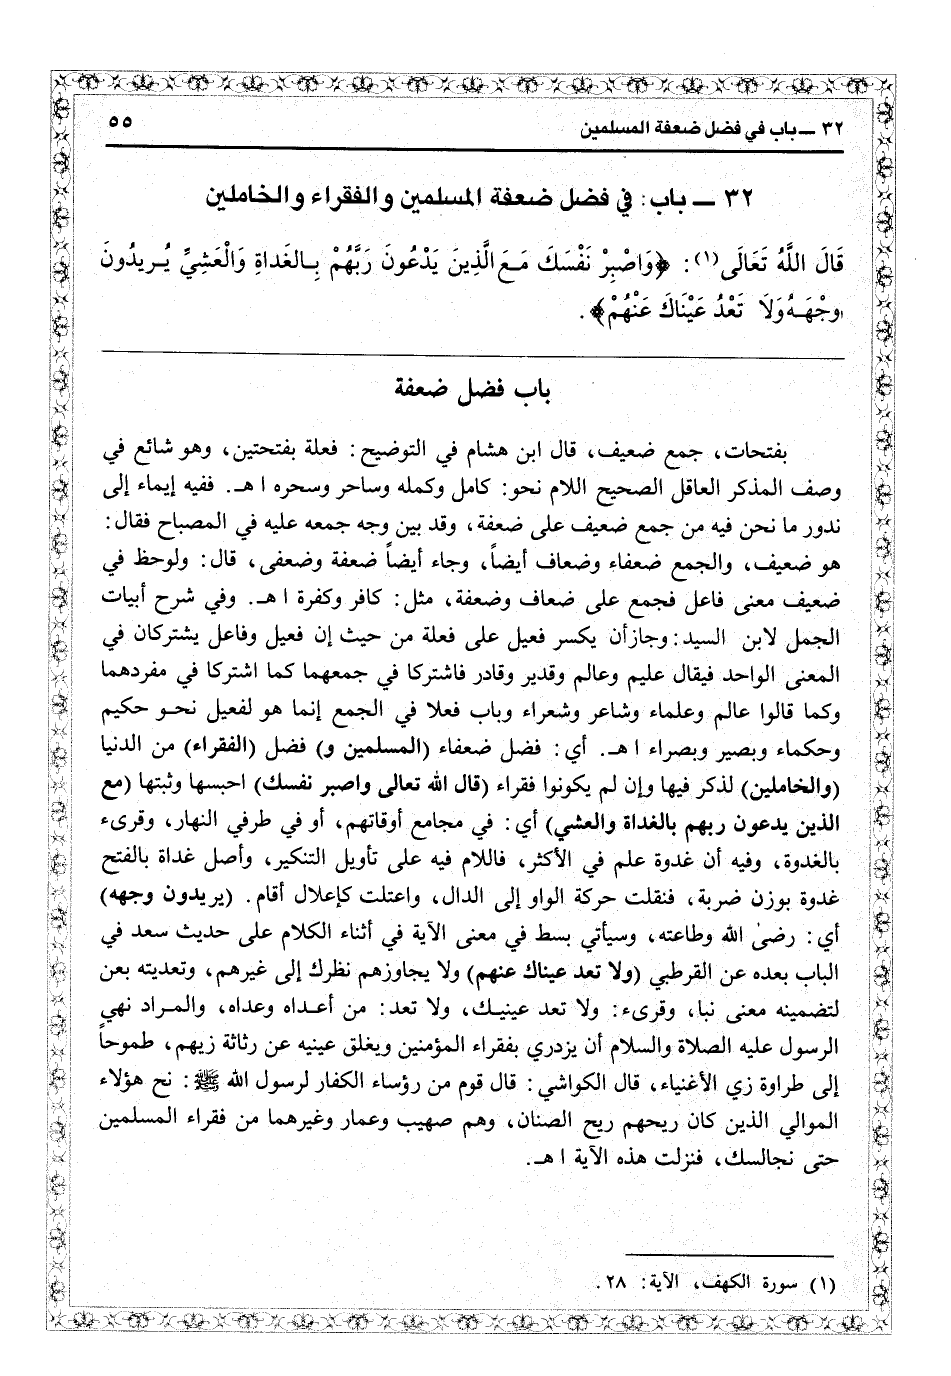 ٣٢ ــ باب في فضل ضعفة المسلمين ٥٥
٣٢ ــ باب: في فضل ضعفة المسلمين والفقراء والخاملين
قَالَ اللَّهُ تَعَالَى(١): ﴿وَاصْبِرْ نَفْسَكَ مَعَ الَّذِينَ يَدْعُونَ رَبَّهُمْ بِالغَدَاةِ وَالْعَشِيِّ يُرِيدُونَ
وجْهَهُ وَلَا تَعْدُ عَيْنَاكَ عَنْهُمْ﴾.
باب فضل ضعفة
بفتحات، جمع ضعيف، قال ابن هشام في التوضيح: فعلة بفتحتين، وهو شائع في
وصف المذكر العاقل الصحيح اللام نحو: كامل وكمله وساحر وسحره ا هـ. ففيه إيماء إلى
ندور ما نحن فيه من جمع ضعيف على ضعفة، وقد بين وجه جمعه عليه في المصباح فقال:
هو ضعيف، والجمع ضعفاء وضعاف أيضاً، وجاء أيضاً ضعفة وضعفى، قال: ولوحظ في
ضعيف معنى فاعل فجمع على ضعاف وضعفة، مثل: كافر وكفرة ا هـ. وفي شرح أبيات
الجمل لابن السيد: وجازأن يكسر فعيل على فعلة من حيث إن فعيل وفاعل يشتركان في
المعنى الواحد فيقال عليم وعالم وقدير وقادر فاشتركا في جمعهما كما اشتركا في مفردهما
وكما قالوا عالم وعلماء وشاعر وشعراء وباب فعلا في الجمع إنما هو لفعيل نحو حكيم
وحكماء وبصير وبصراء ا هـ. أي: فضل ضعفاء (المسلمين و) فضل (الفقراء) من الدنيا
(والخاملين) لذكر فيها وإن لم يكونوا فقراء (قال الله تعالى واصبر نفسك) احبسها وثبتها (مع
الذين يدعون ربهم بالغداة والعشي) أي: في مجامع أوقاتهم، أو في طرفي النهار، وقرىء
بالغدوة، وفيه أن غدوة علم في الأكثر، فاللام فيه على تأويل التنكير، وأصل غداة بالفتح
غدوة بوزن ضربة، فنقلت حركة الواو إلى الدال، واعتلت كإعلال أقام. (يريدون وجهه)
أي: رضىٰ الله وطاعته، وسيأتي بسط في معنى الآية في أثناء الكلام على حديث سعد في
الباب بعده عن القرطبي (ولا تعد عيناك عنهم) ولا يجاوزهم نظرك إلى غيرهم، وتعديته بعن
لتضمينه معنى نبا، وقرىء: ولا تعد عينيك، ولا تعد: من أعداه وعداه، والمراد نهي
الرسول عليه الصلاة والسلام أن يزدري بفقراء المؤمنين ويغلق عينيه عن رثاثة زيهم، طموحاً
إلى طراوة زي الأغنياء، قال الكواشي: قال قوم من رؤساء الكفار لرسول الله ﷺ: نح هؤلاء
الموالي الذين كان ريحهم ريح الصنان، وهم صهيب وعمار وغيرهما من فقراء المسلمين
حتى نجالسك، فنزلت هذه الآية ا هـ.
(١) سورة الكهف، الآية: ٢٨.